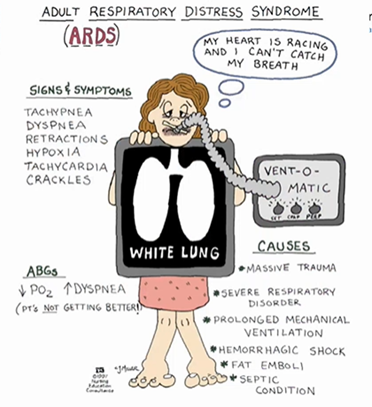 ADULT RESPIRATORY DISTRESS SYNDROME
(ARDS)
MY HEART IS RACING
AND I CAN'T CATCH
MY BREATH
SIGNS & SYMPTOMS
TACHYPNEA
DYSPNEA
RETRACTIONS
HYPOXIA
TACHYCARDIA
CRACKLES
VENT-O-
MATIC
CPAP PEEP
WHITE LUNG
CAUSES
*MASSIVE TRAUMA
*SEVERE RESPIRATORY
DISORDER
*PROLONGED MECHANICAL
VENTILATION
*HEMORRHAGIC SHOCK
*FAT EMBOLI
*SEPTIC
CONDITION
ABGs
↓PO2 ↑DYSPNEA
(PT'S NOT GETTING BETTER!)
Nursing
Education
Consultants